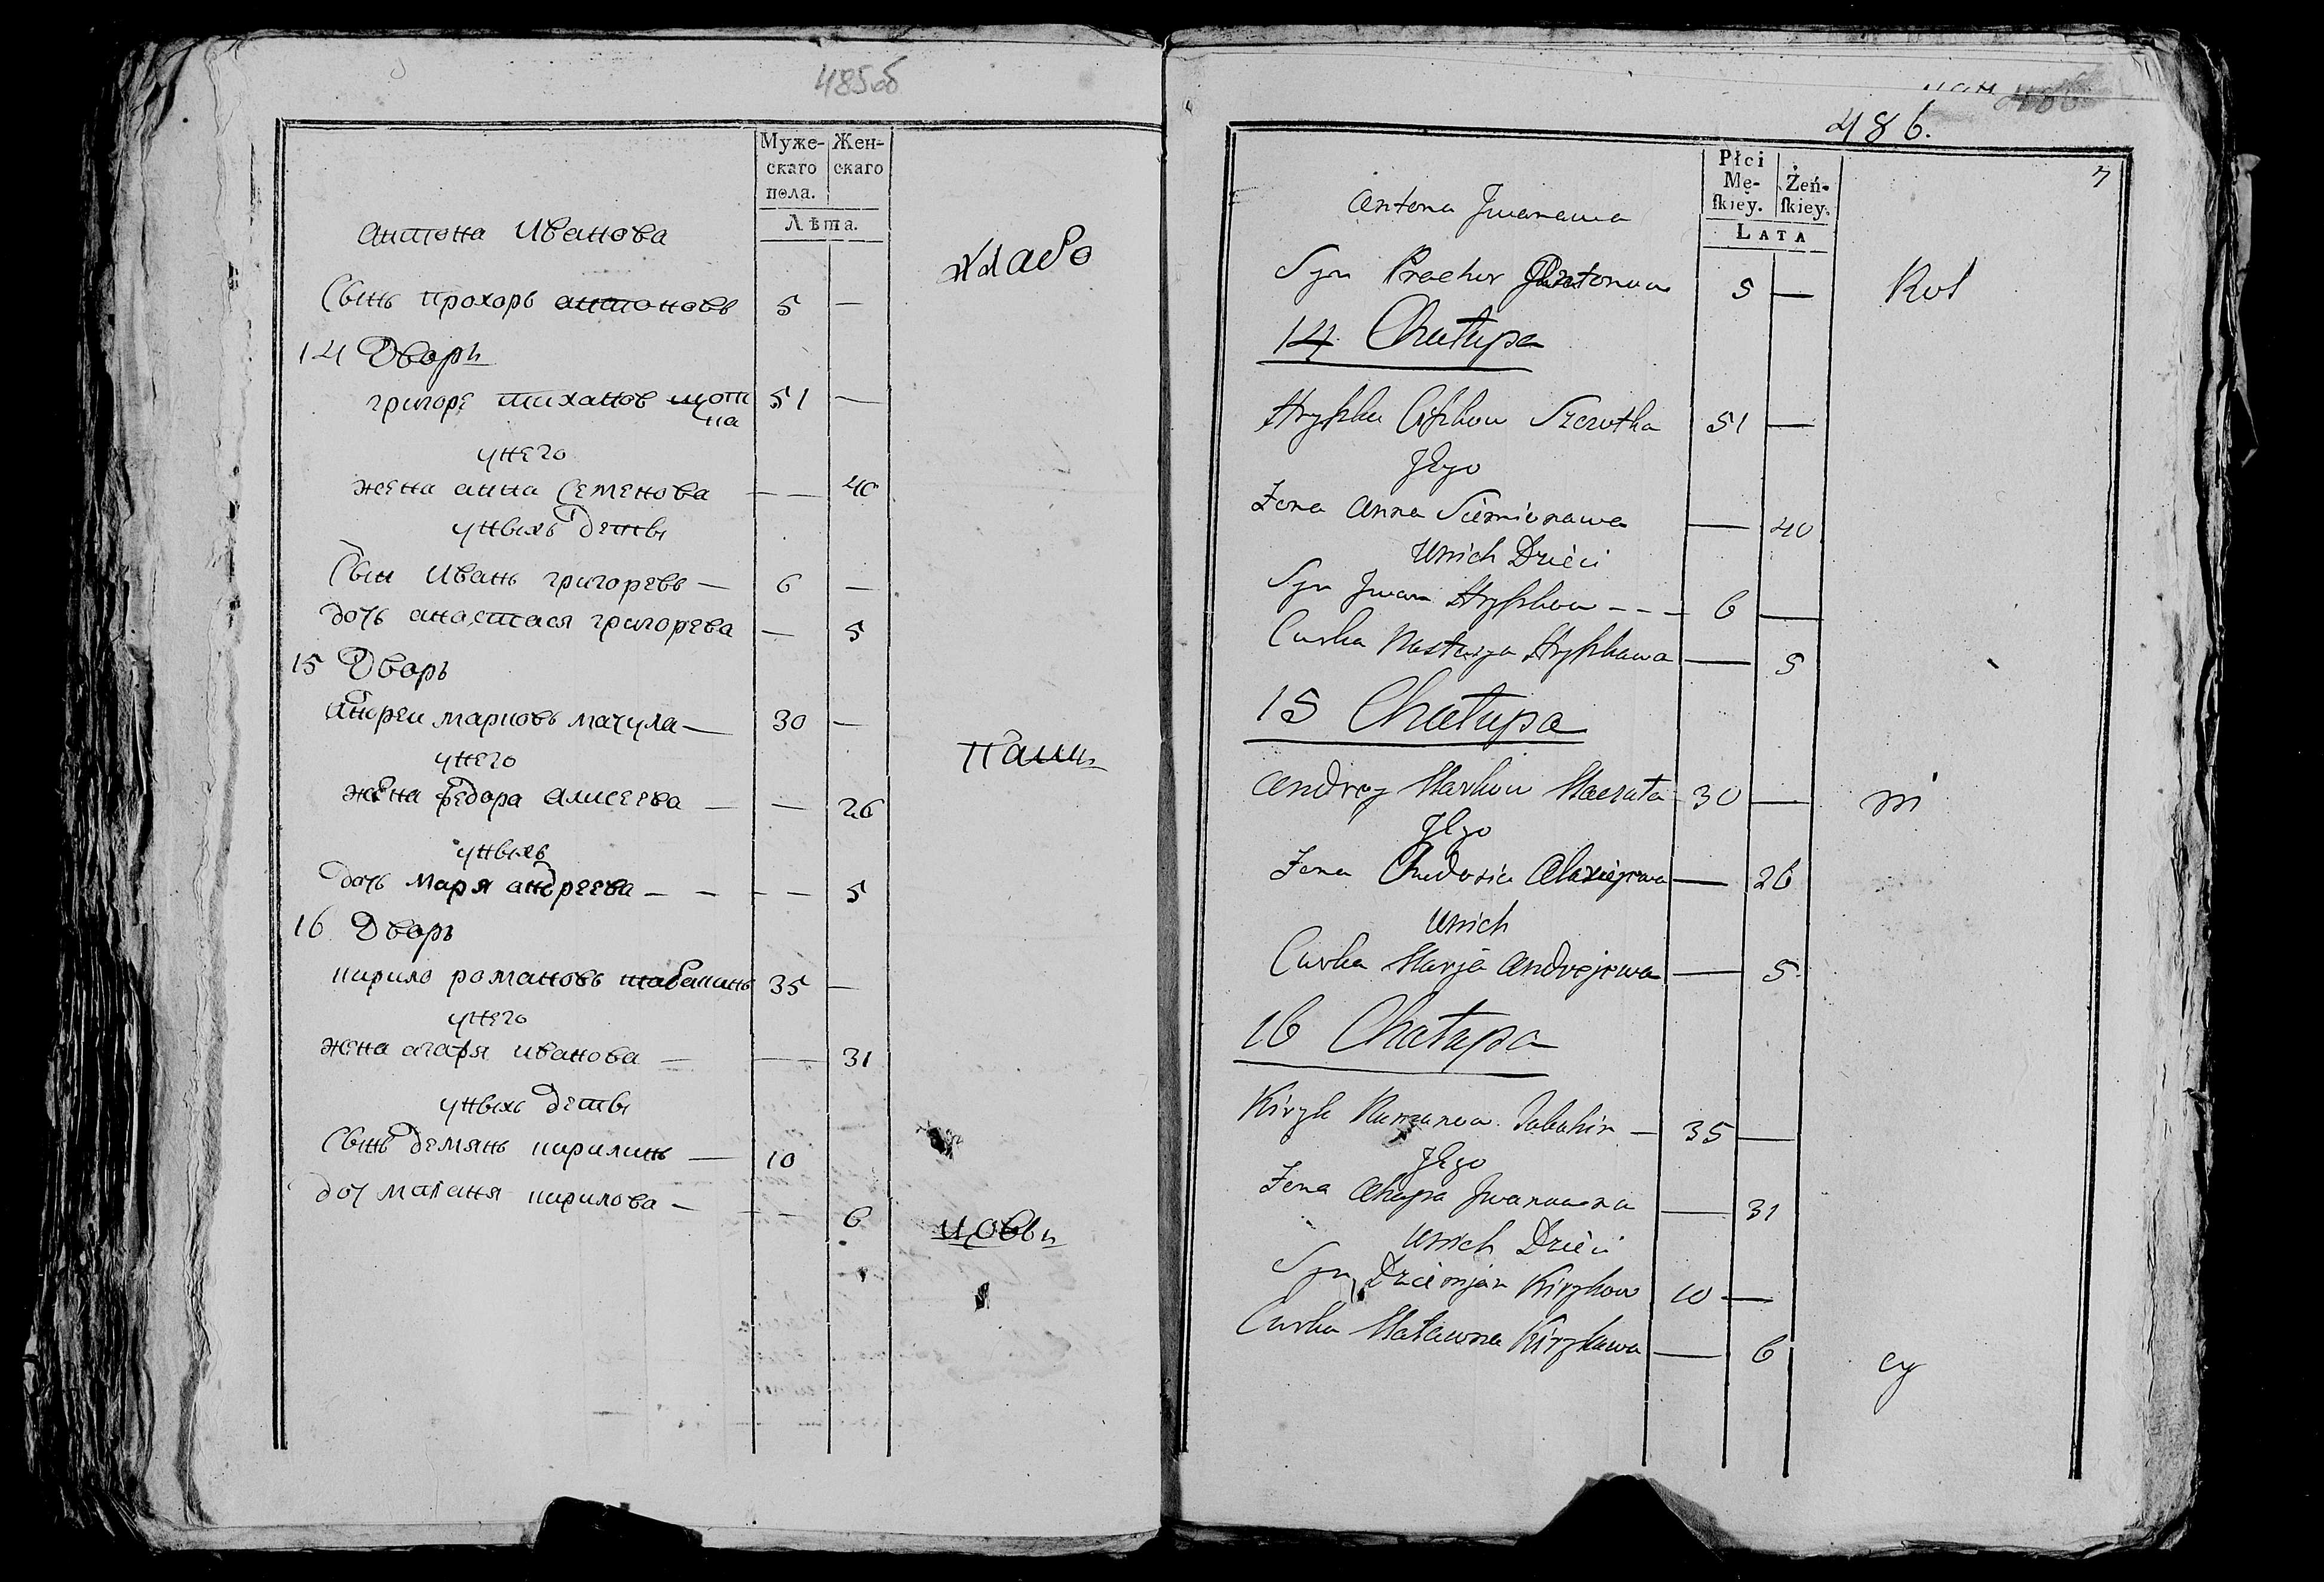 485об
Муже-
скаго
пола.
Жен-
скаго
Лѣта.
антона Иванова
Сынь прохорь антоновь 5 —
хлабо
14 Дворь
григоре тиханов щот
ка 51 —
унего
жена анна Семенова — — 40
уныхь деты
Сын Ивань григоревь — 6 —
дочь анастася григорева — 5
15 Дворь
Андреи марковь мачула — 30 —
унего
пашь
жена федора алисеева — — 26
уныхь
дочь Маря андреева — — — — 5
16 Дворь
кирило романовь табакинь 35 —
унего
жена агафя иванова — — 31
уныхь деты
Сынь демянь кирилинь — 10
доч маланя кирилова — — — 6
цовьы
486.
7
Płci
Mę-
skiey.
Żeń-
skiey.
LATA
Antona Jwanawa
Syn Prachor Antonow 5 —
Rol
14 Chałupa
Hryszko Ciszkow Szczotka 51 —
Jego
Żona Anna Siemionawa — 40
Unich Dzieci
Syn Jwan Hryszkow - - - 6 —
Curka Nastazya Hryszkawa — 5
15 Chałupa
Andrey Markow Maczuła 30 —
ni
Jego
Żona Chwdosia Alexiejewa — 26
Unich
Curka Marja Andrejewa — 5
16 Chałupa
Kiryk Ramanow Tabakin — 35 —
Jego
Żona Ahapa Jwanawna — 31
Unich Dzieci
Syn Dziemjan Kirykow 10 —
Curka Maławna Kirykawa — 6
cy